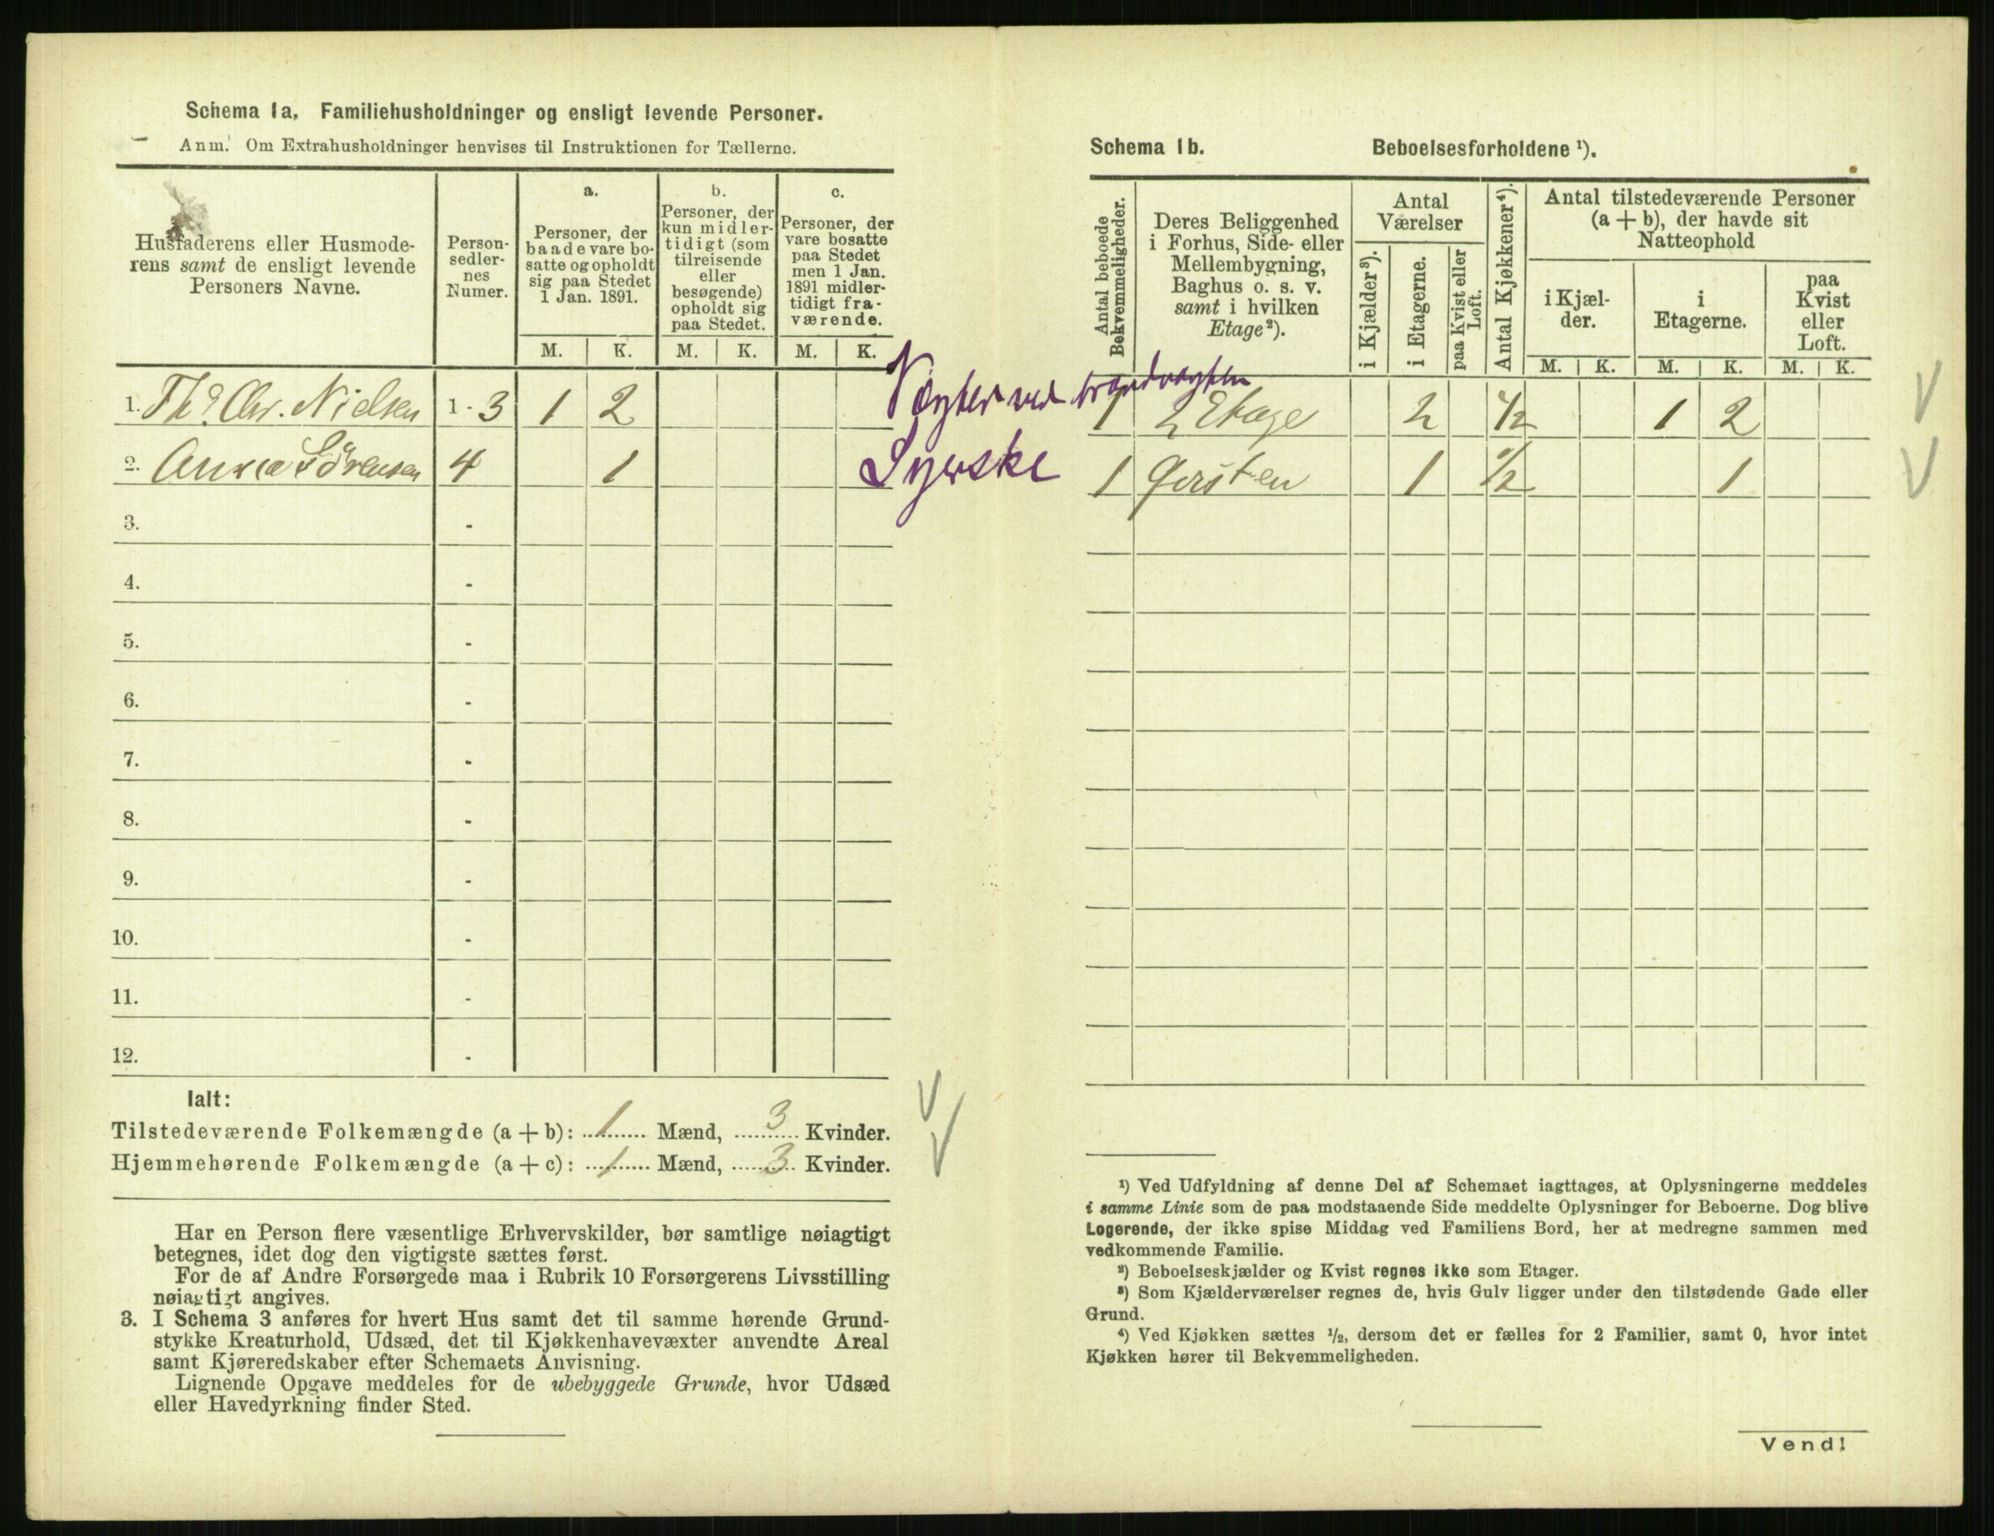 Schema 1a. Familiehusholdninger og ensligt levende Personer.
Anm. Om Extrahusholdninger henvises til Instruktionen for Tællerne.
Husfaderens eller Husmode-
rens samt de ensligt levende
Personers Navne.
Person-
sedler-
nes
Numer.
a.
Personer, der
baade vare bo-
satte og opholdt
sig paa Stedet
1 Jan. 1891.
b.
Personer, der
kun midler-
tidigt (som
tilreisende
eller
besøgende)
opholdt sig
paa Stedet.
c.
Personer, der
vare bosatte
paa Stedet
men 1 Jan.
1891 midler-
tidigt fra-
værende.
M. K. M. K. M. K.
1. Th. Chr. Nielsen 1 - 3 1 2 Vægter ved brandvagten
2. Anna Sörensen 4 1 Syerske
3. -
4. -
5. -
6. -
7. -
8. -
9. -
10. -
11. -
12. -
Ialt:
Tilstedeværende Folkemængde (a + b): 1 Mænd, 3 Kvinder.
Hjemmehørende Folkemængde (a + c): 1 Mænd, 3 Kvinder.
Har en Person flere væsentlige Erhvervskilder, bør samtlige nøiagtigt
betegnes, idet dog den vigtigste sættes først.
For de af Andre Forsørgede maa i Rubrik 10 Forsørgerens Livsstilling
nøiagtigt angives.
3. I Schema 3 anføres for hvert Hus samt det til samme hørende Grund-
stykke Kreaturhold, Udsæd, det til Kjøkkenhavevæxter anvendte Areal
samt Kjøreredskaber efter Schemaets Anvisning.
Lignende Opgave meddeles for de ubebyggede Grunde, hvor Udsæd
eller Havedyrkning finder Sted.
Schema 1b. Beboelsesforholdene ¹).
Antal beboede
Bekvemmeligheder.
Deres Beliggenhed
i Forhus, Side- eller
Mellembygning,
Baghus o. s. v.
samt i hvilken
Etage²).
Antal
Værelser
i Kjælder³).
i Etagerne.
paa Kvist eller
Loft.
Antal Kjøkkener⁴).
Antal tilstedeværende Personer
(a + b), der havde sit
Natteophold
i Kjæl-
der.
i
Etagerne.
paa
Kvist
eller
Loft.
M. K. M. K. M. K.
1 2 Etage 2 1/2 1 2
1 1 1/2 1
¹) Ved Udfyldning af denne Del af Schemaet iagttages, at Oplysningerne meddeles
i samme Linie som de paa modstaaende Side meddelte Oplysninger for Beboerne. Dog blive
Logerende, der ikke spise Middag ved Familiens Bord, her at medregne sammen med
vedkommende Familie.
²) Beboelseskjælder og Kvist regnes ikke som Etager.
³) Som Kjælderværelser regnes de, hvis Gulv ligger under den tilstødende Gade eller
Grund.
⁴) Ved Kjøkken sættes ½, dersom det er fælles for 2 Familier, samt 0, hvor intet
Kjøkken hører til Bekvemmeligheden.
Vend!